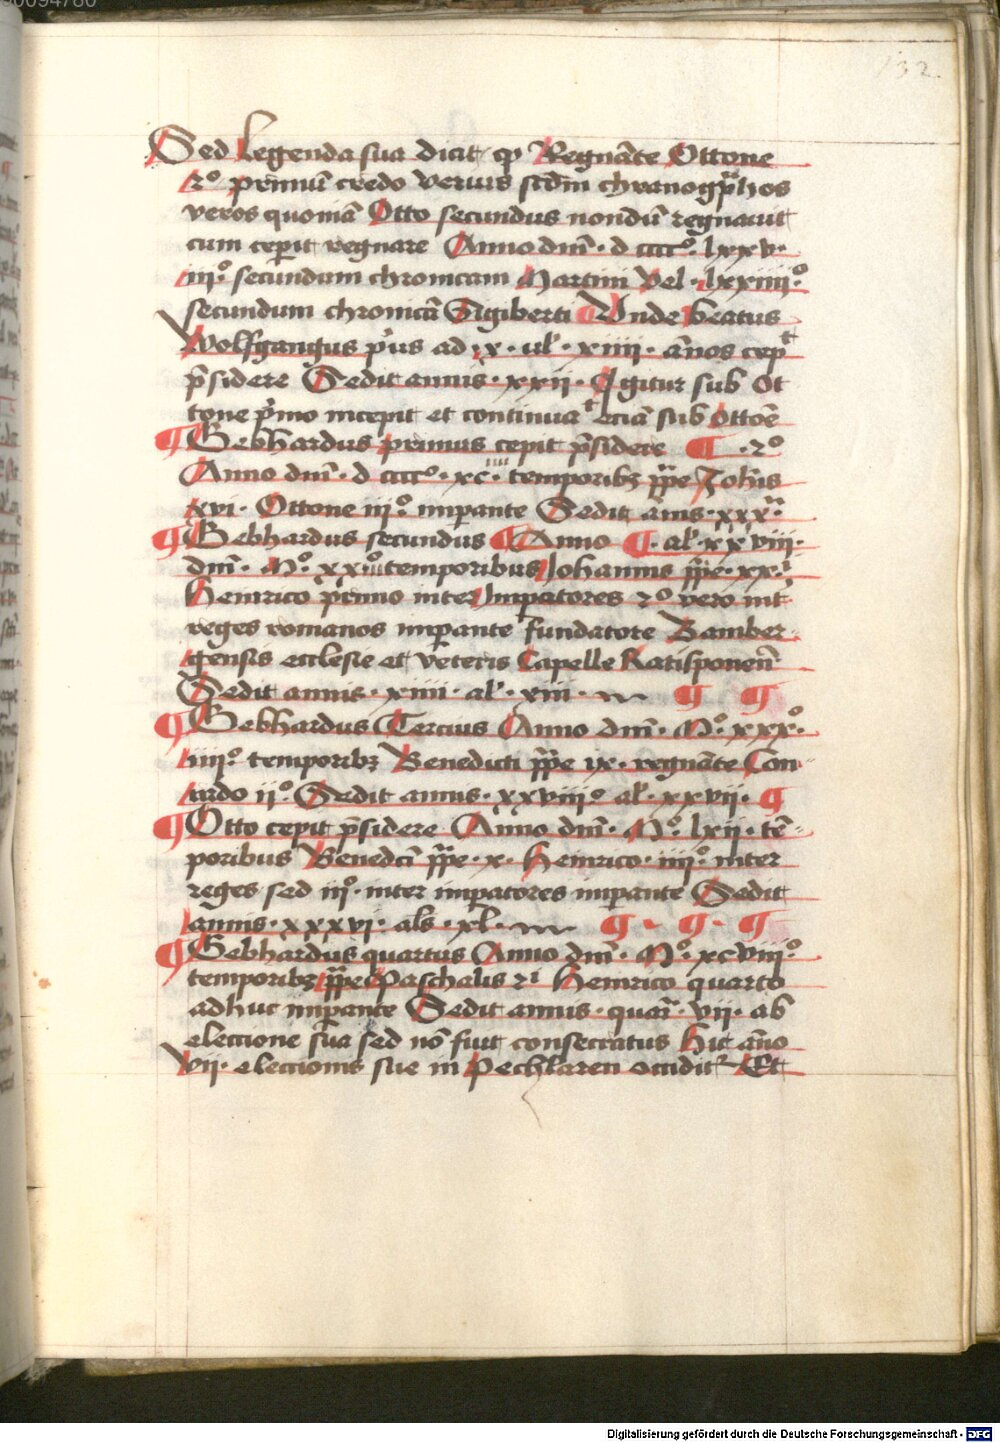 132
Sed Legenda sua dicit ꝙ Regnāte Ottone
2º primuū credo verius scdm̄ chronogrͣphos
veros quoniā Otto secundus nondū regnauit
cum cepit regnare Anno dm̄ · d cccc° · lxxv ·
iiij° secundum chronicam Martini vel · lxxiiij°
secundum chronicā Sigiberti Unde beatus
Wolfgangus pͥus ad · x · ul' · xiiii · ānos cepᵗ
p̄sidere Sedit annis · xxii · Igitur sub Ot
tone pͥmo incepit et continuaᵗ eciā sub Ottoē
¶ Gebhardus primus cepit p̄sidere ¶ · 2º
Anno dm̄ · d cccc° · xc · iiii · temporibꝫ pp̄e Joh̄is
xvi · Ottone iij° imꝑante Sedit anis · xxx ·
¶ Gebhardus secundus ¶ Anno ¶ · al' · xxviii ·
dm̄ · M° · xxiii° temporibus Johannis pp̄e · xx ·
Heinrico pͥmo inter Imꝑatores 2º vero int̄
reges romanos imꝑante fundatore Bamber
gensis ecclesie et veteris Capelle Ratisponen̄
Sedit annis · xiiii · al' · xiii · ¶ ¶
¶ Gebhardus Tercius Anno dm̄ · M° · xxx° ·
iiij° temporibꝫ Benedicti pp̄e ix · regnāte Con
rado ii° · Sedit annis · xxviiii° al' · xxvii · ¶
¶ Otto cepit p̄sidere Anno dm̄ · M° · lxii · tē
poribus Benedc̄i pp̄e · x · Heinrico · iiij° · inter
reges sed iij° · inter imꝑatores imꝑante Sedit
annis · xxxvi · als · xl · ¶ · ¶ · ¶
¶ Gebhardus quartus Anno dm̄ · M° · xcviii° ·
temporibꝫ pp̄e Paschalis 2ⁱ Heinrico quarto
adhuc imꝑante Sedit annis · quaī · vii · ab
eleccione sua sed nō fuit consecratus Hic āno
vii · eleccionis sue in Pechlaren occiditᷣ Et
Digitalisierung gefördert durch die Deutsche Forschungsgemeinschaft - DFG